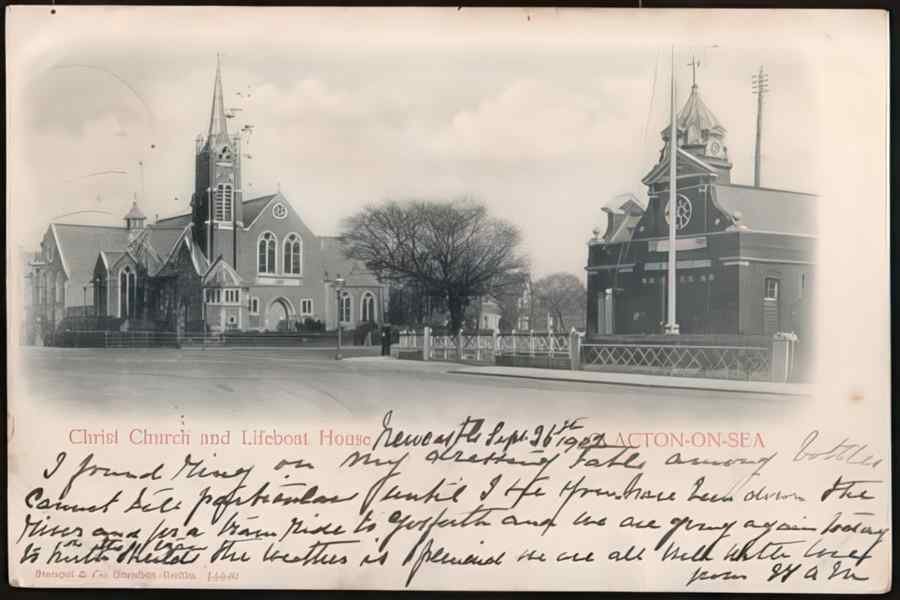 Christ Church and Lifeboat House
ACTON-ON-SEA
Newcastle Sept. 26th 1902
I found Ring on my dressing table among bottles
cannot tell particular until I
have been down the
River and for a tram Ride to Gosforth and we are going again today
to North Shields the weather is splendid we are all well with love
from